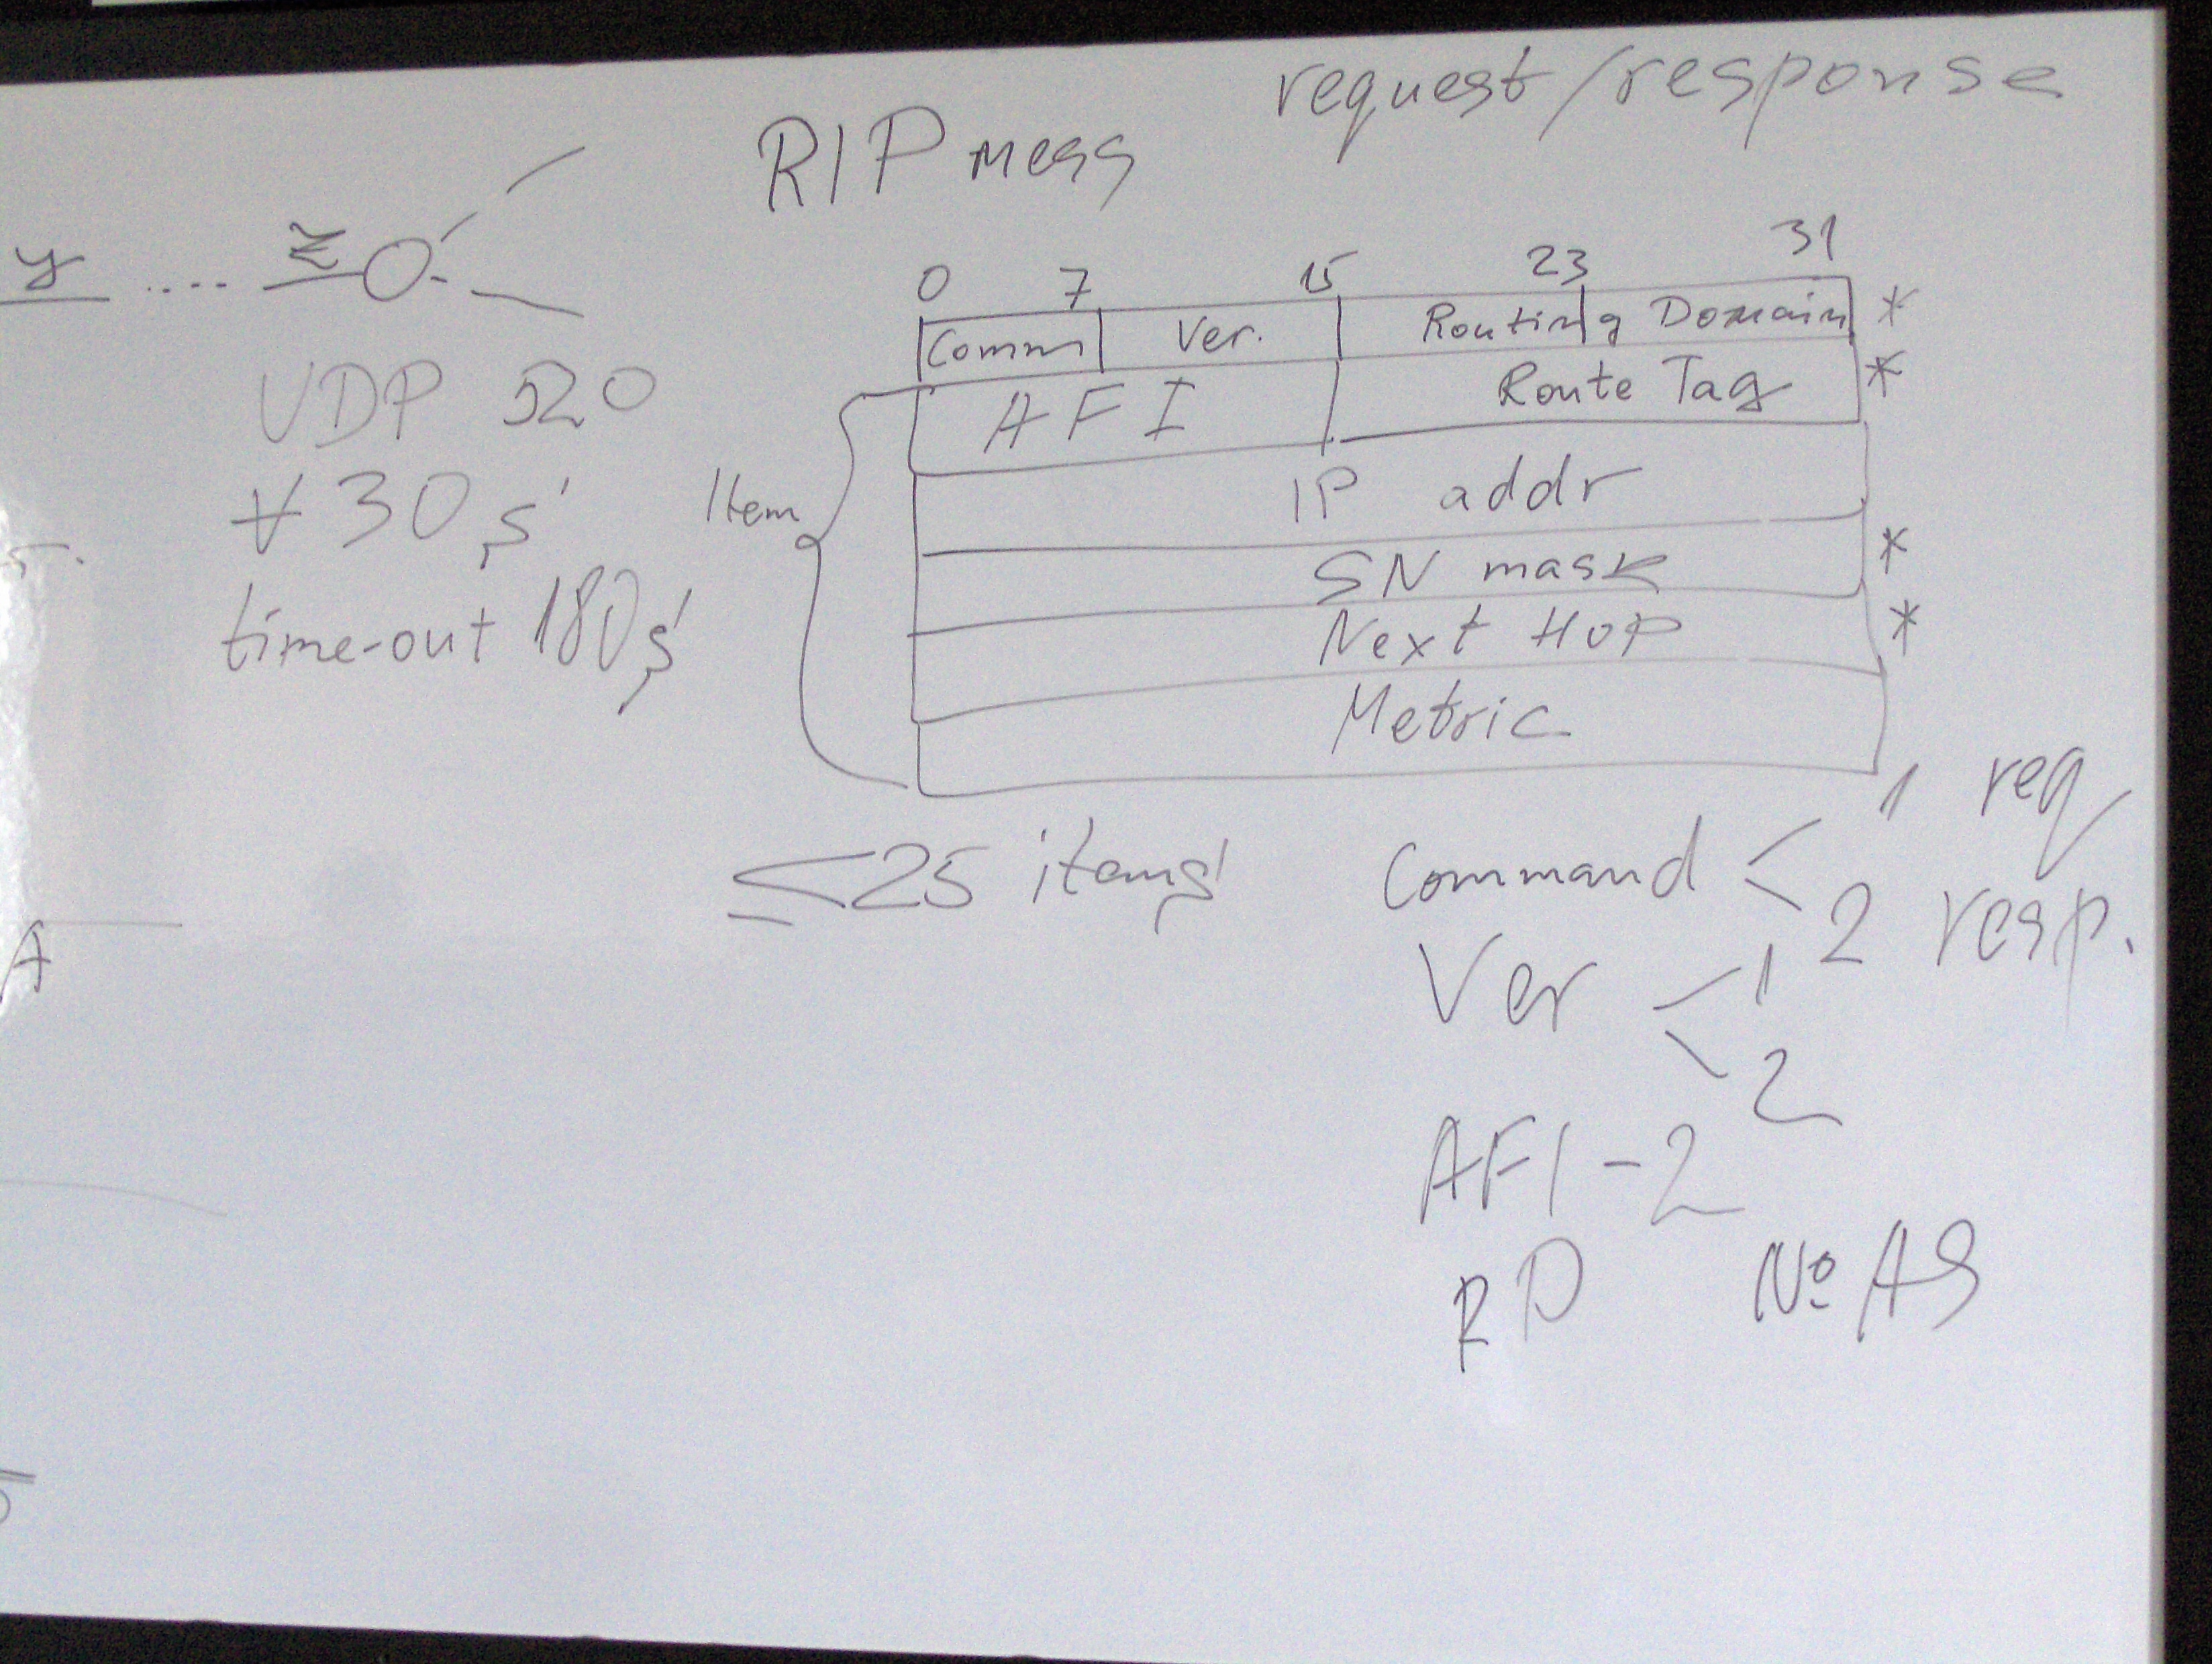 request/response
RIP mess
y .... z
0 7 15 23 31
Comm Ver. Routing Domain *
AFI Route Tag *
IP addr
SN mask *
Next Hop *
Metric
Item
UDP 520
∀ 30 s
time-out 180 s
≤ 25 items
Command < 1 req
2 resp.
Ver < 1
2
AFI - 2
RD № AS
A